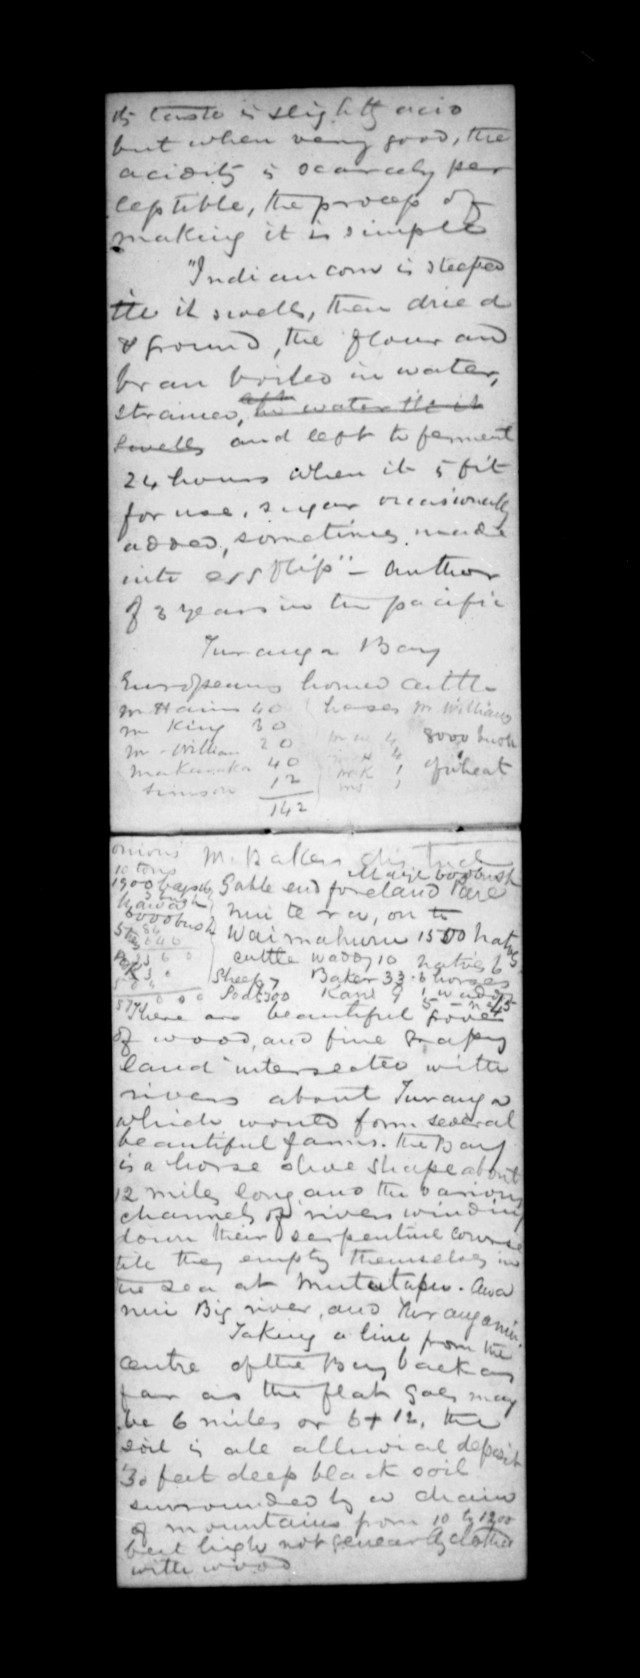 its taste is slightly acid
but when very good, the
acidity is scarcely per
ceptible, the process of
making it is simple
"Indian corn is steeped
till it swells, then dried
& ground, the flour and
bran boiled in water,
strained, after in water till it
swells and left to ferment
24 hours when it is fit
for use, sugar occasionally
added, sometimes made
into egg flip" - author
of 3 years in the pacific
Turanga Bay
Europeans horned cattle
Mr Harris 40 horses Mr Williams
Mr King 30
Mr William 20 4 8000 bush
40 4 of wheat
Simson 12 1
142
onions Mr Bakers district
10 tons Maize 6000 bush
Gable end foreland Pare
nui te ra, on to
6000 bush Waimahuru 1500 natvs
cattle Waddy 10 natves 6
Sheep 7 Baker 33. 6 horses
There are beautiful groves
of wood, and fine grassy
land intersected with
rivers about Turanga
which would form several
beautiful farms. The Bay
is a horse shoe shape about
12 miles long and the various
channels of rivers winding
down their serpentine course
till they empty themselves in
the sea at Mututapu. Awa
nui Big river, and Turanganui.
Taking a line from the
centre of the Bay back as
far as the flat goes may
be 6 miles or 6 + 12, the
soil is all alluvial deposit
30 feet deep black soil
surrounded by a chain
of mountains from 10 to 1200
feet high not generally clothed
with wood